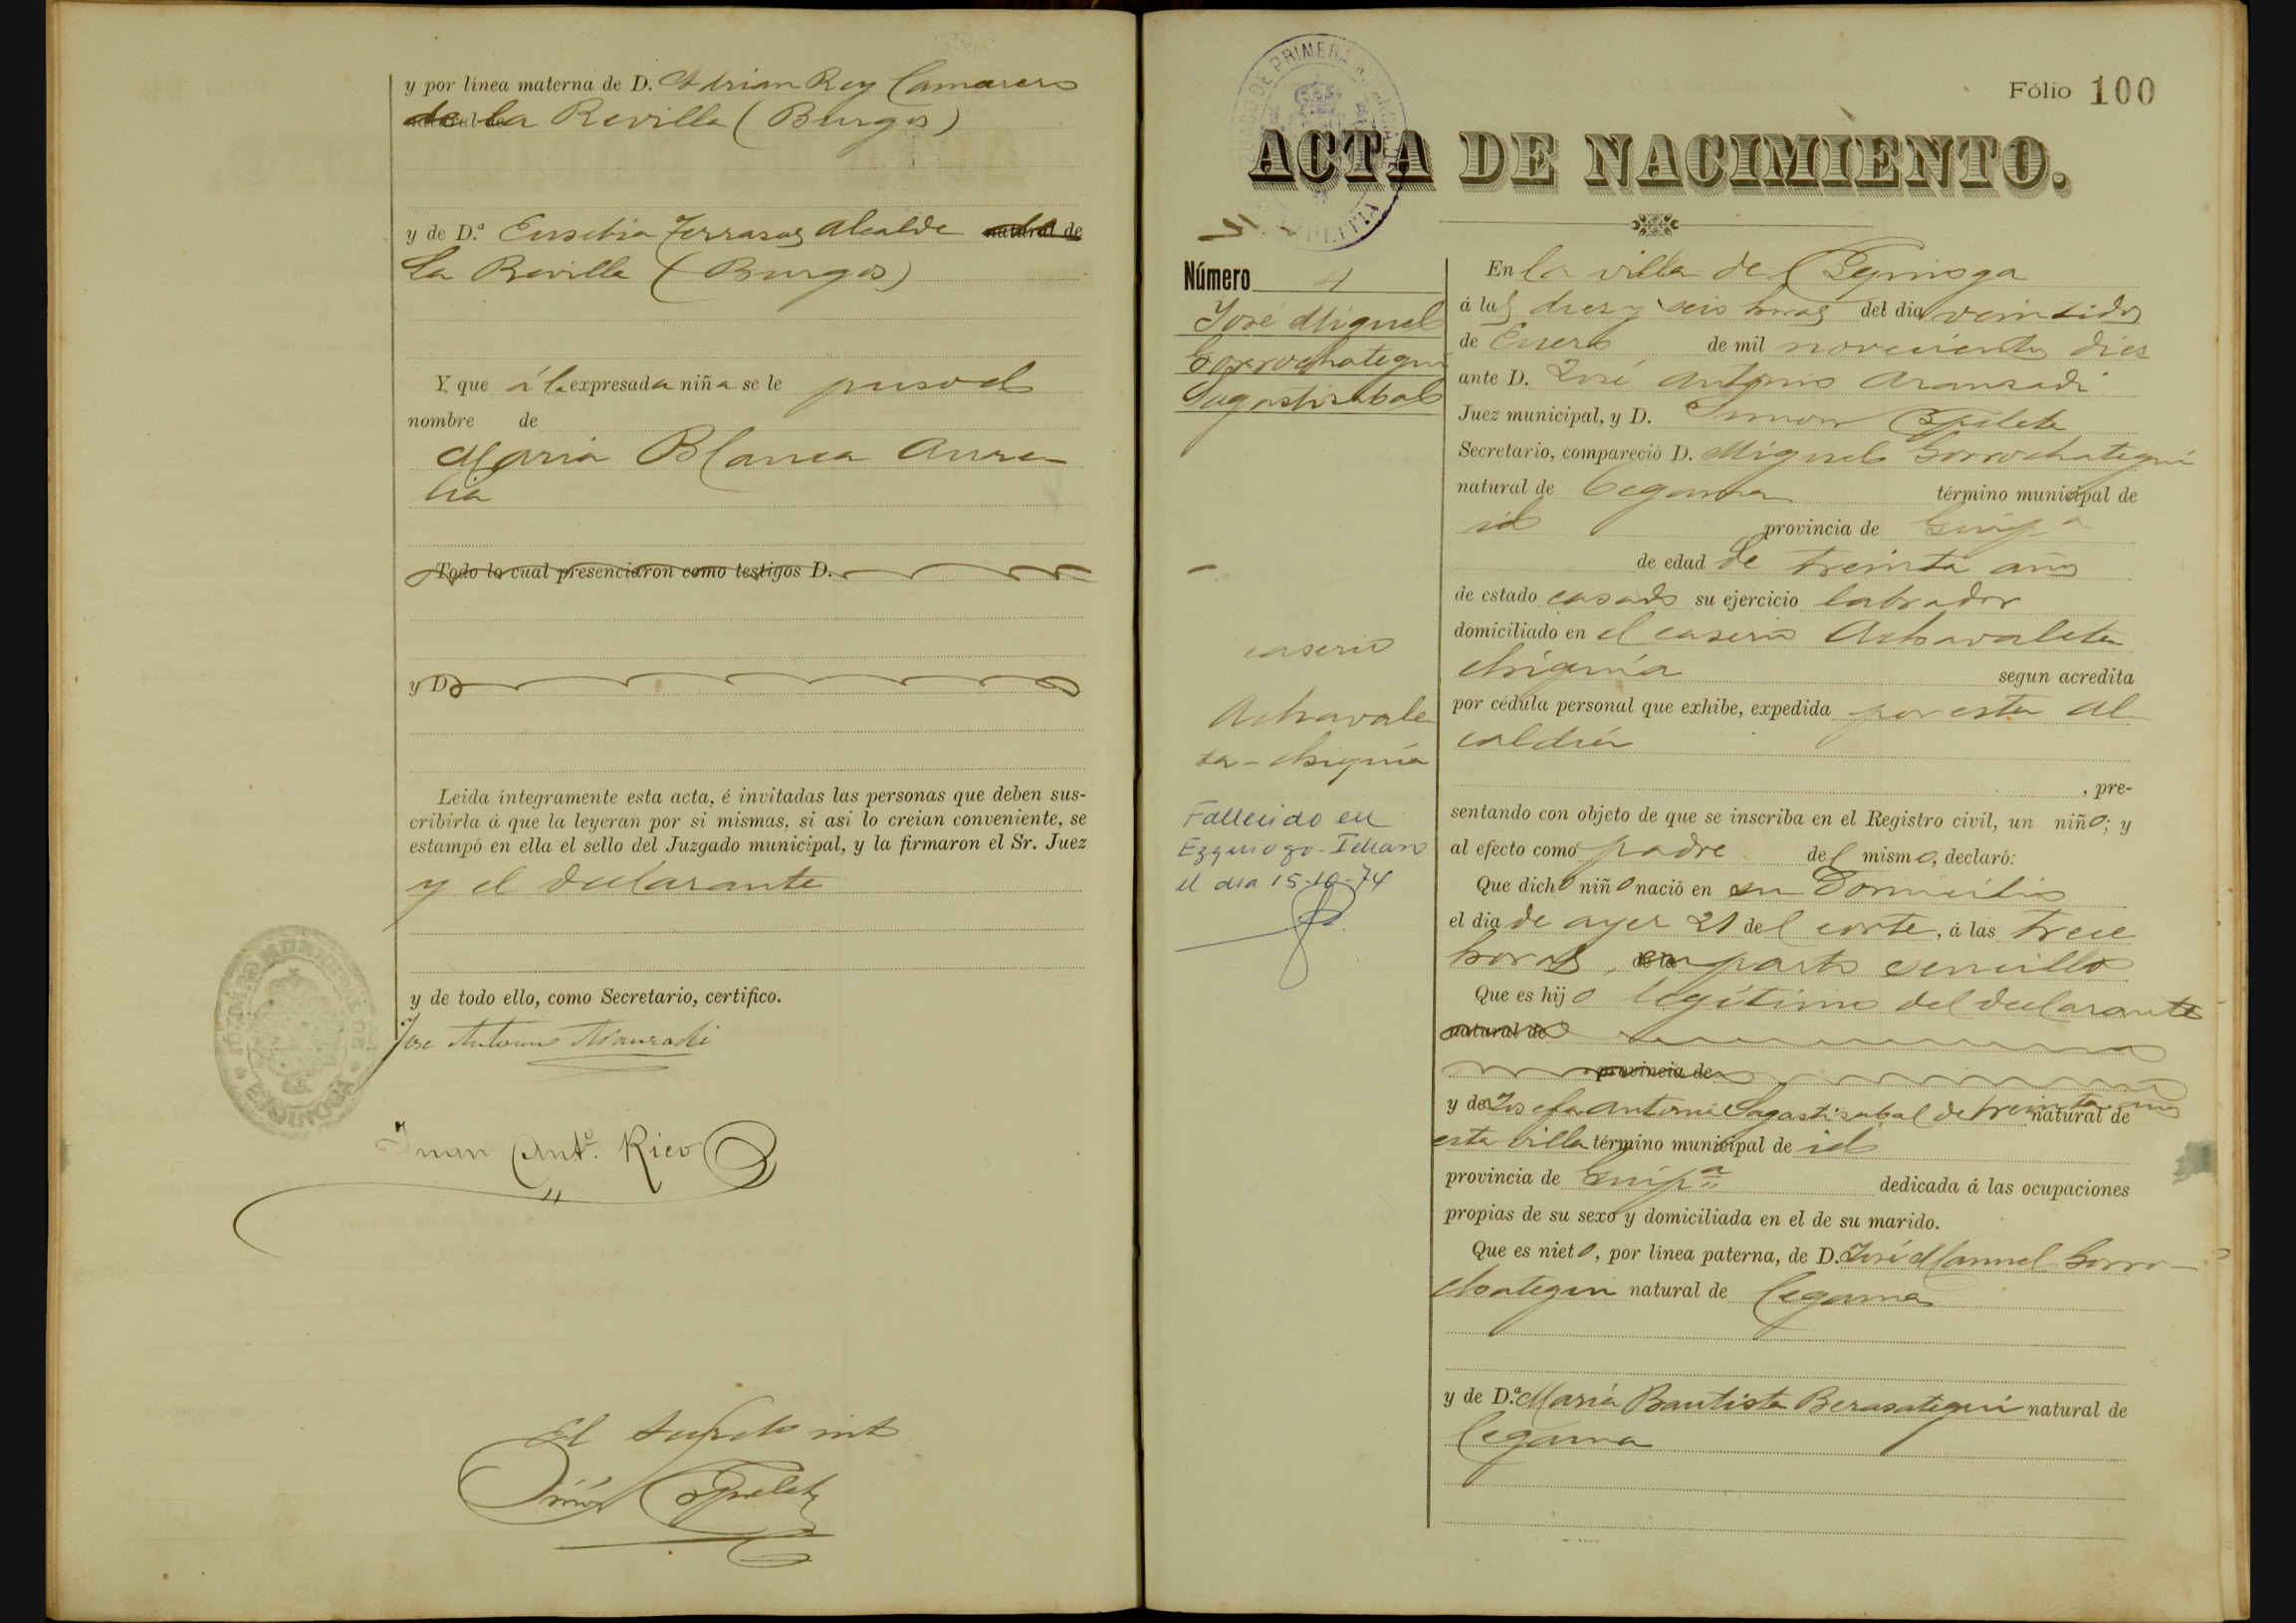 y por línea materna de D. Adrian Rey Camarero
de La Revilla (Burgos)
y de D.ª Eusebia Terrazas Alcalde natural de
La Revilla (Burgos)
Y que á la expresada niña se le puso el
nombre de
Maria Blanca Aure-
lia
Todo lo cual presenciaron como testigos D.
y D.
Leida íntegramente esta acta, é invitadas las personas que deben sus-
cribirla á que la leyeran por si mismas, si asi lo creian conveniente, se
estampó en ella el sello del Juzgado municipal, y la firmaron el Sr. Juez
y el declarante
y de todo ello, como Secretario, certifico.
JUZGADO MUNICIPAL DE EZQUIOGA
Jose Antonio Aranzadi
Juan Ant.º Rico
El
Simón
Fólio 100
JUZGADO DE PRIMERA INSTANCIA AZPEITIA
ACTA DE NACIMIENTO.
Número 4
José Miguel
Gorrochategui
Sagastizabal
caserio
Acharvale
ta-chiquia
Fallecido en
Ezquioga-Ichaso
el dia 15-10-74
En la villa de Ezquioga
á las diez y seis horas del dia veintidos
de Enero de mil novecientos diez
ante D. José Antonio Aranzadi
Juez municipal, y D. Simon
Secretario, compareció D. Miguel Gorrochategui
natural de Cegama término municipal de
id provincia de Guipª
de edad de treinta años
de estado casado su ejercicio labrador
domiciliado en el caserio Acharvaleta
chiquía segun acredita
por cédula personal que exhibe, expedida por esta Al-
caldía
, pre-
sentando con objeto de que se inscriba en el Registro civil, un niño; y
al efecto como padre del mismo, declaró:
Que dicho niño nació en su Domicilio
el dia de ayer 21 del corte, á las trece
horas, en parto sencillo
Que es hijo legítimo del declarante
natural de
provincia de
y de Josefa Antonia Sagastizabal de treinta años natural de
esta villa término municipal de id
provincia de Guipª dedicada á las ocupaciones
propias de su sexo y domiciliada en el de su marido.
Que es nieto, por línea paterna, de D. José Manuel Gorro-
chategui natural de Cegama
y de D.ª María Bautista Berasategui natural de
Cegama